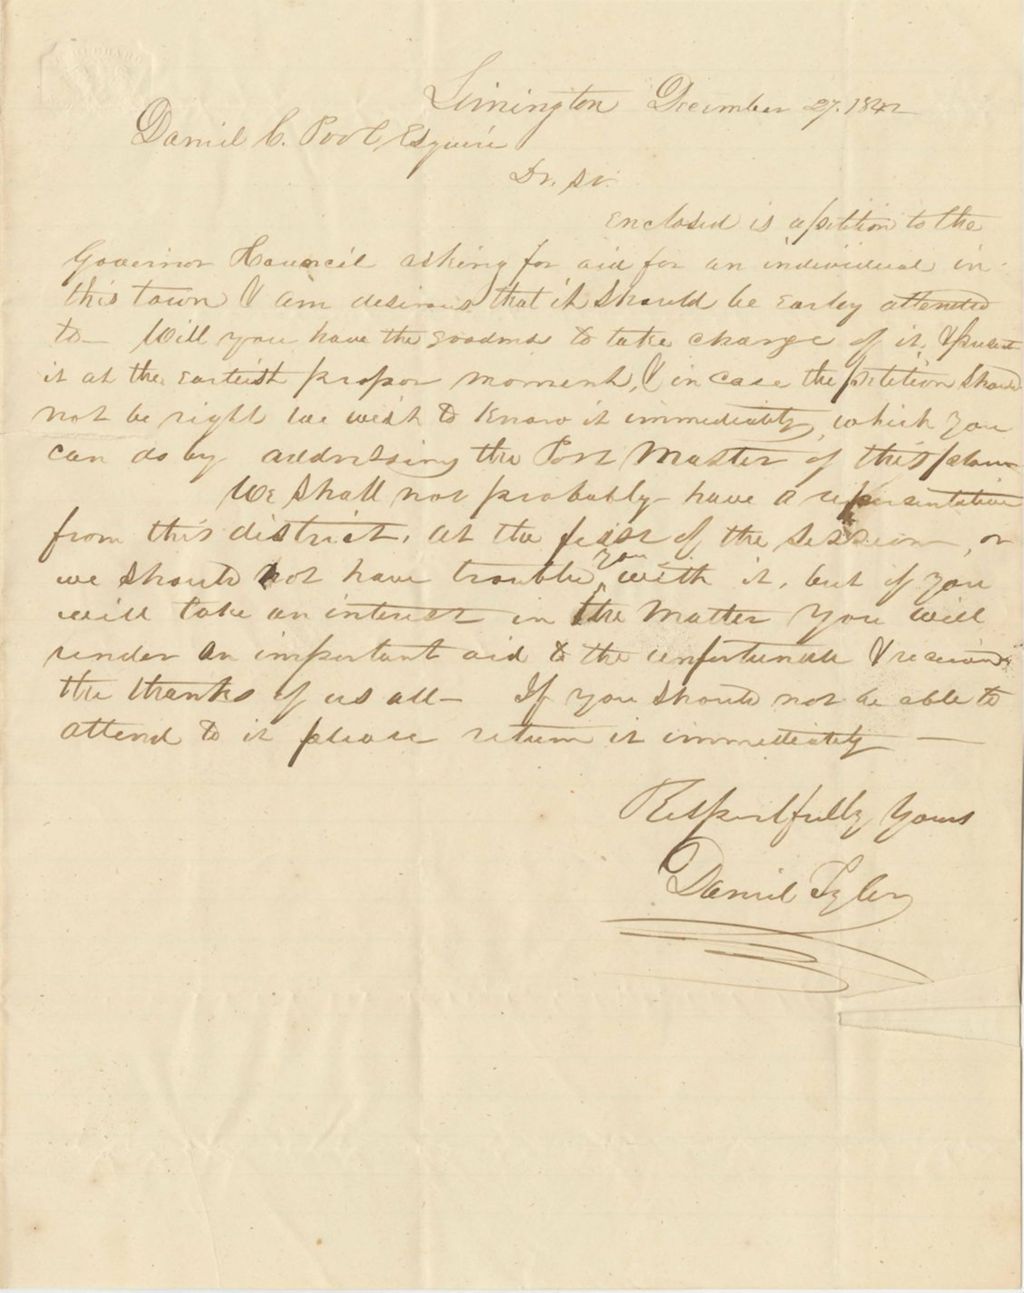 Limington December 27. 1842
Daniel C. Pool, Esquire
Dr. Sir.
Enclosed is a petition to the
Governor & Council asking for aid for an individual in
this town & I am desirous that it should be early attended
to – Will you have the goodness to take charge of it, & present
it at the earliest proper moment, & in case the petition should
not be right we wish to know it immediately, which you
can do by addressing the Post Master of this place
We shall not probably have a representative
from this district, at the first of the session, or
we should not have trouble you with it, but if you
will take an interest in the matter you will
render an important aid to the unfortunate & receive
the thanks of us all – If you should not be able to
attend to it please return it immediately —
Respectfully Yours
Daniel Tyler